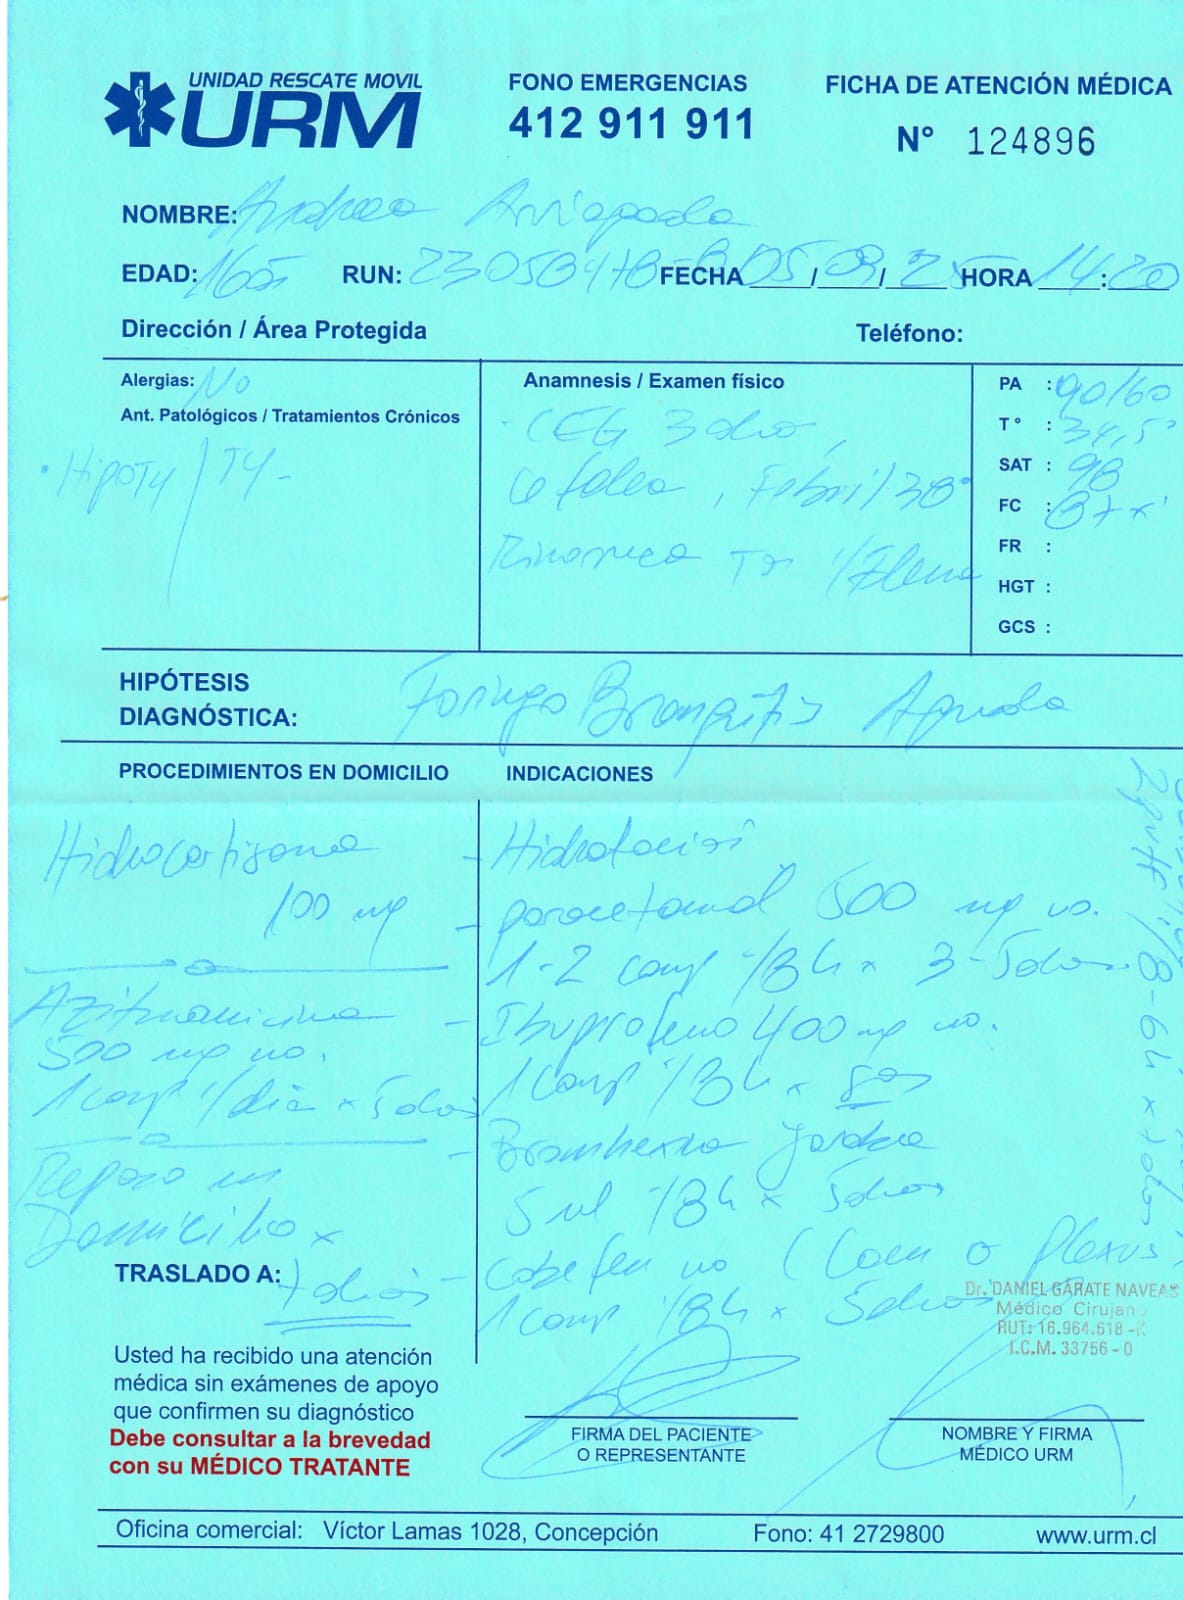 UNIDAD RESCATE MOVIL
URM
FONO EMERGENCIAS
412 911 911
FICHA DE ATENCIÓN MÉDICA
N° 124896
NOMBRE: Andrea
EDAD: 16 RUN: FECHA 05/09/25 HORA 14:20
Dirección / Área Protegida Teléfono:
Alergias: No
Ant. Patológicos / Tratamientos Crónicos
• HipoTy / TY -
Anamnesis / Examen físico
- CEG 3 dias,
Cefalea, Febril 38°
Rinorrea Tos
PA : 90/60
T° : 34,5°
SAT : 98
FC : 87 x'
FR :
HGT :
GCS :
HIPÓTESIS
DIAGNÓSTICA: Faringo Bronquitis Aguda
PROCEDIMIENTOS EN DOMICILIO
Hidrocortisona
100 mg
Azitromicina
500 mg vo.
1 comp 1/dia x 5 dias
Reposo en
Domicilio x
TRASLADO A: 7 dias
INDICACIONES
- Hidratacion
- paracetamol 500 mg vo.
1-2 comp /8h x 3-5 dias
- Ibuprofeno 400 mg vo.
1 comp /8h x
- Bromhexina Jarabe
5 ml /8h x 5 dias
- vo (
1 comp /8h x 5 dias
Dr. DANIEL GÁRATE NAVEAS
Médico Cirujano
RUT: 16.964.618 -K
I.C.M. 33756 - 0
Usted ha recibido una atención
médica sin exámenes de apoyo
que confirmen su diagnóstico
Debe consultar a la brevedad
con su MÉDICO TRATANTE
FIRMA DEL PACIENTE
O REPRESENTANTE
NOMBRE Y FIRMA
MÉDICO URM
Oficina comercial: Víctor Lamas 1028, Concepción Fono: 41 2729800 www.urm.cl